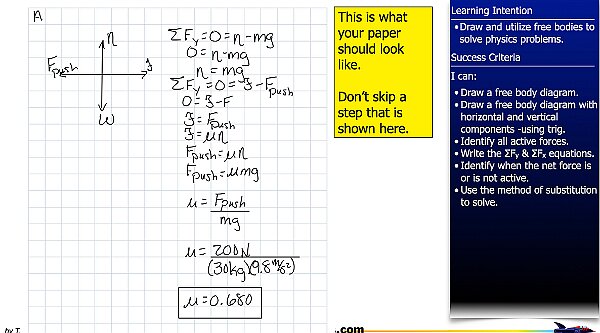 A
n
F push
f
W
ΣFy=0=n-mg
0=n-mg
n=mg
ΣFy=0=f-Fpush
0=f-F
f=Fpush
f=μn
Fpush=μn
Fpush=μmg
μ=Fpush
mg
μ=200N
(30kg)(9.8m/s²)
μ=0.680
This is what
your paper
should look
like.
Don't skip a
step that is
shown here.
Learning Intention
•Draw and utilize free bodies to
solve physics problems.
Success Criteria
I can:
•Draw a free body diagram.
•Draw a free body diagram with
horizontal and vertical
components -using trig.
•Identify all active forces.
•Write the ΣFy & ΣFx equations.
•Identify when the net force is
or is not active.
•Use the method of substitution
to solve.
by T
.com